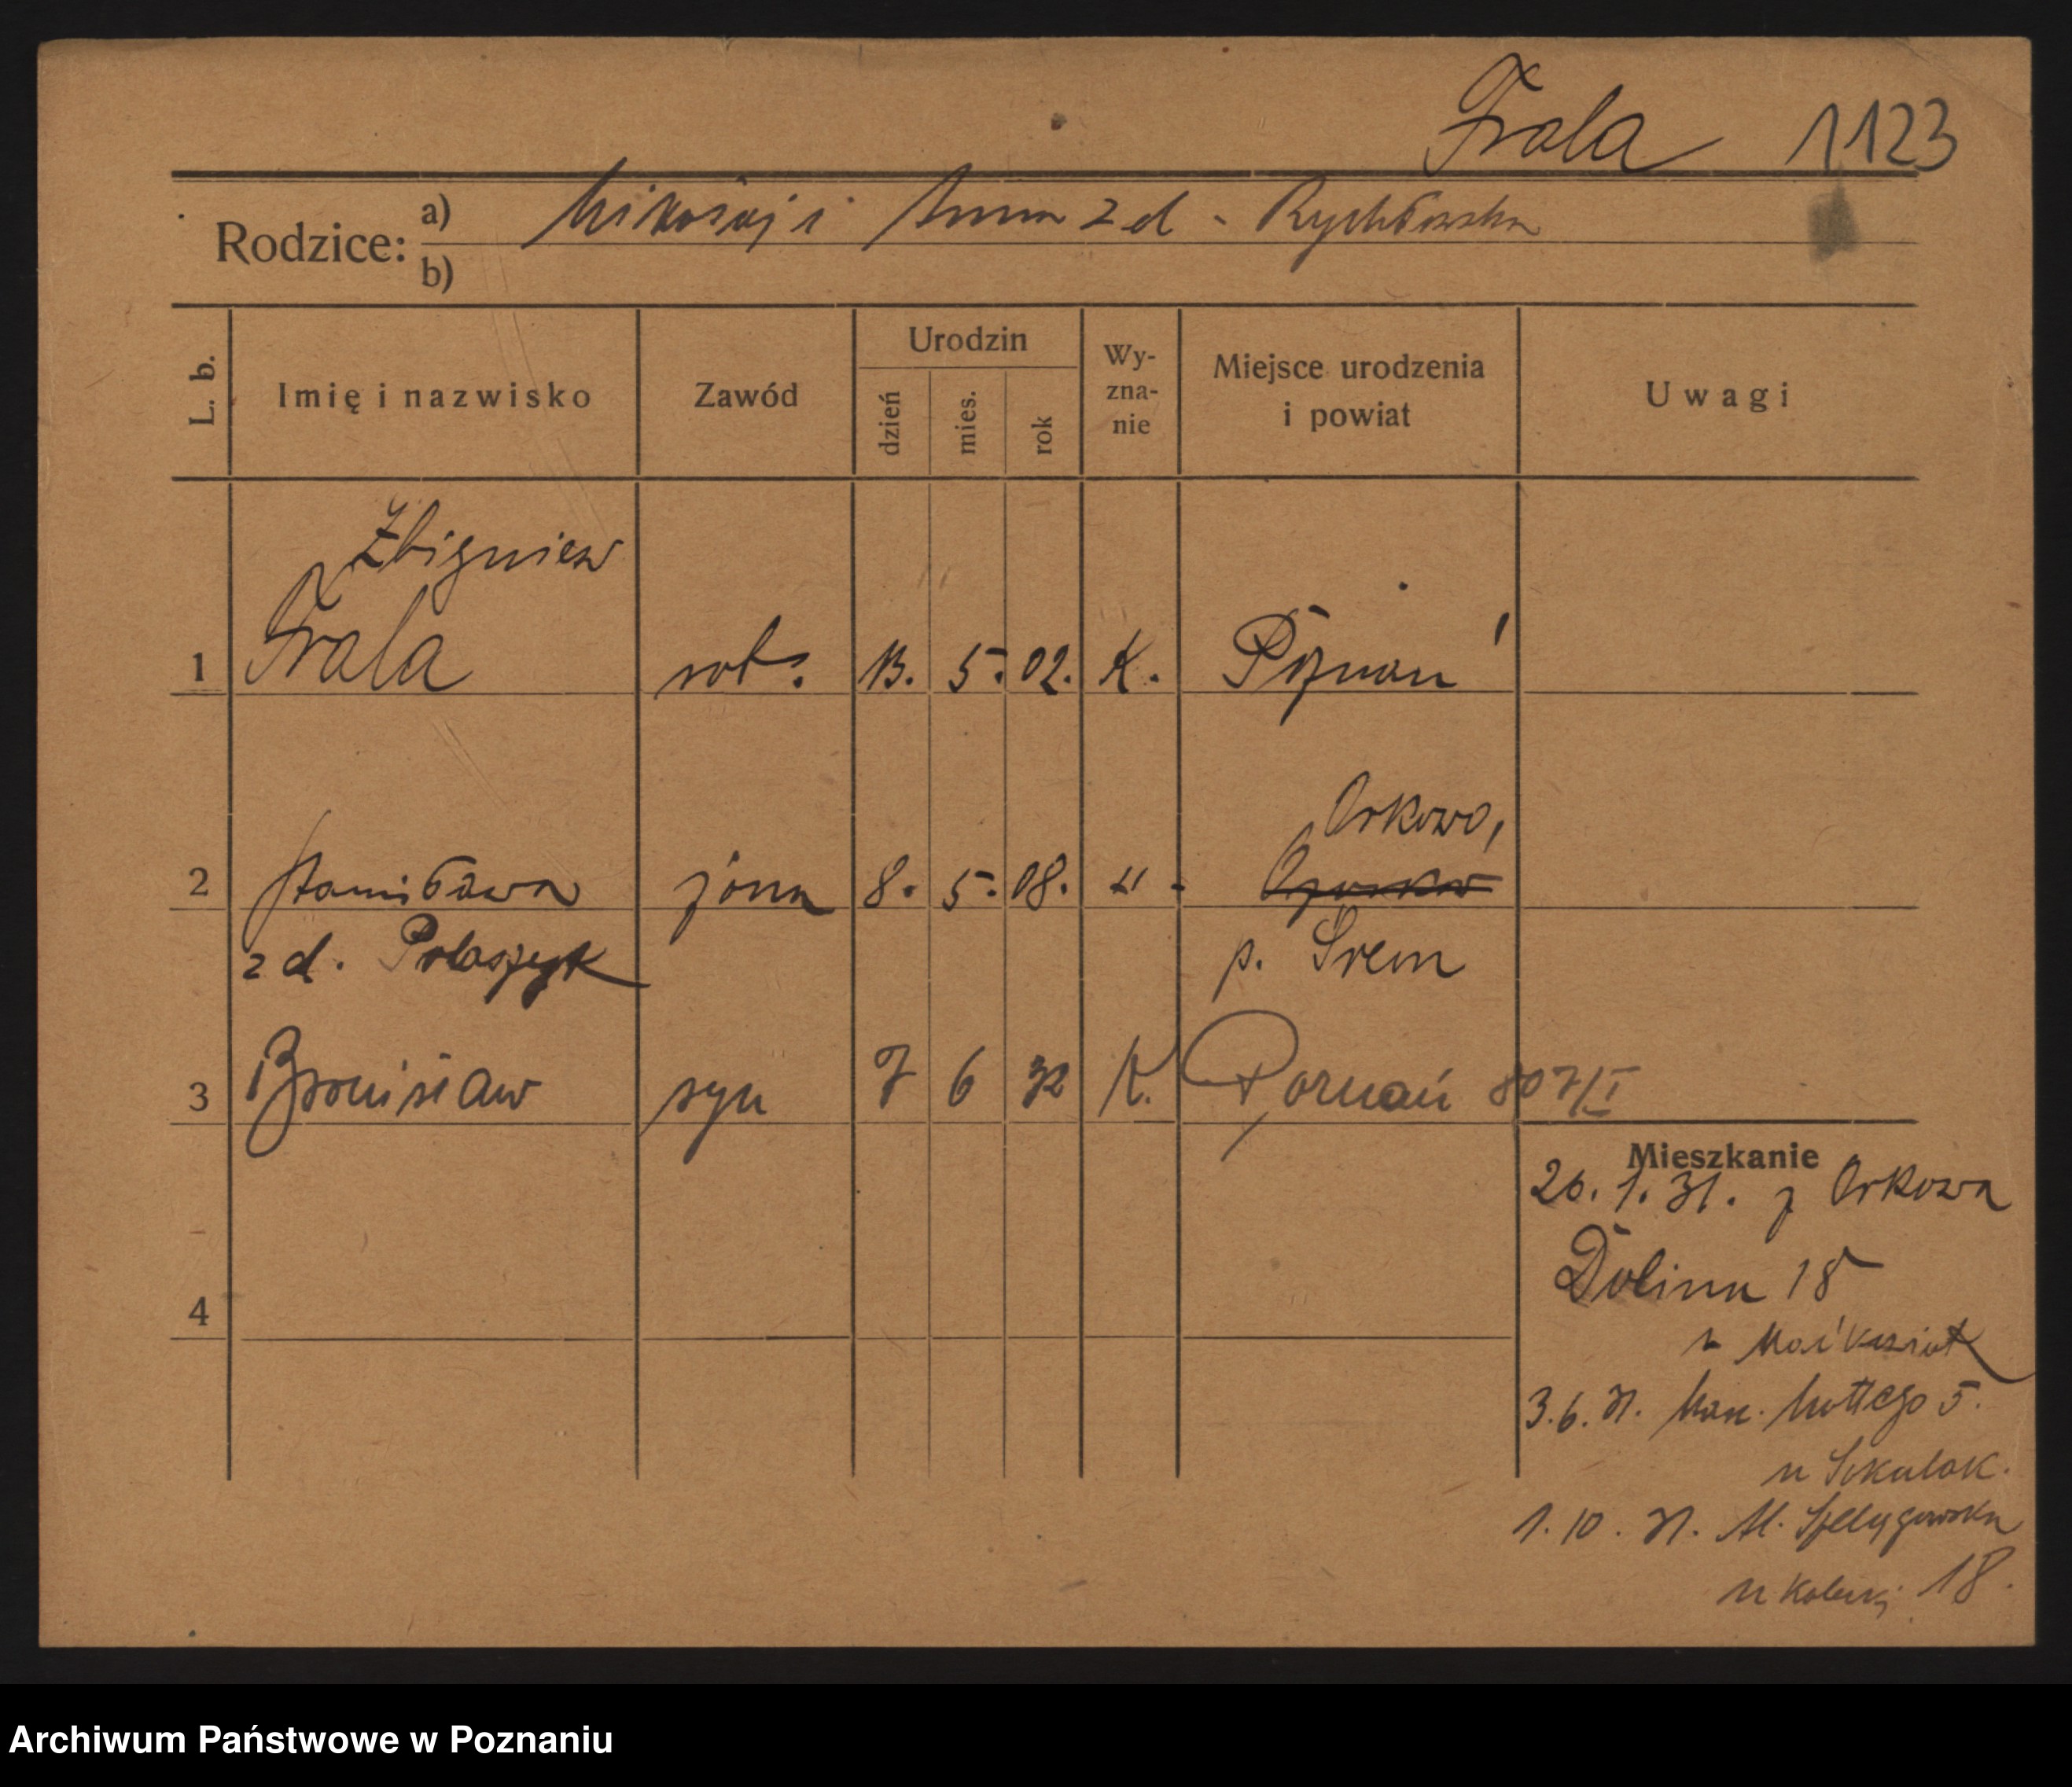 Frala 1123
Rodzice: a) Mikołaj i Anna z d - Rychłowska
b)
L. b. Imię i nazwisko Zawód Urodzin dzień mies. rok Wy-zna-nie Miejsce urodzenia i powiat Uwagi
Zbigniew
1 Frala rob. 13. 5. 02. K. Poznań
Orkowo,
2 Stanisława żona 8. 5. 08. " -
z d. Polaszyk p. Śrem
3 Bronisław syn 7 6 32 K. Poznań 807/I
Mieszkanie
26. 1. 31. z Orkowa
Dolina 18
4
u
3.6.31. Mottego 5.
u
1. 10. 31. Szelągowska
u 18.
Archiwum Państwowe w Poznaniu